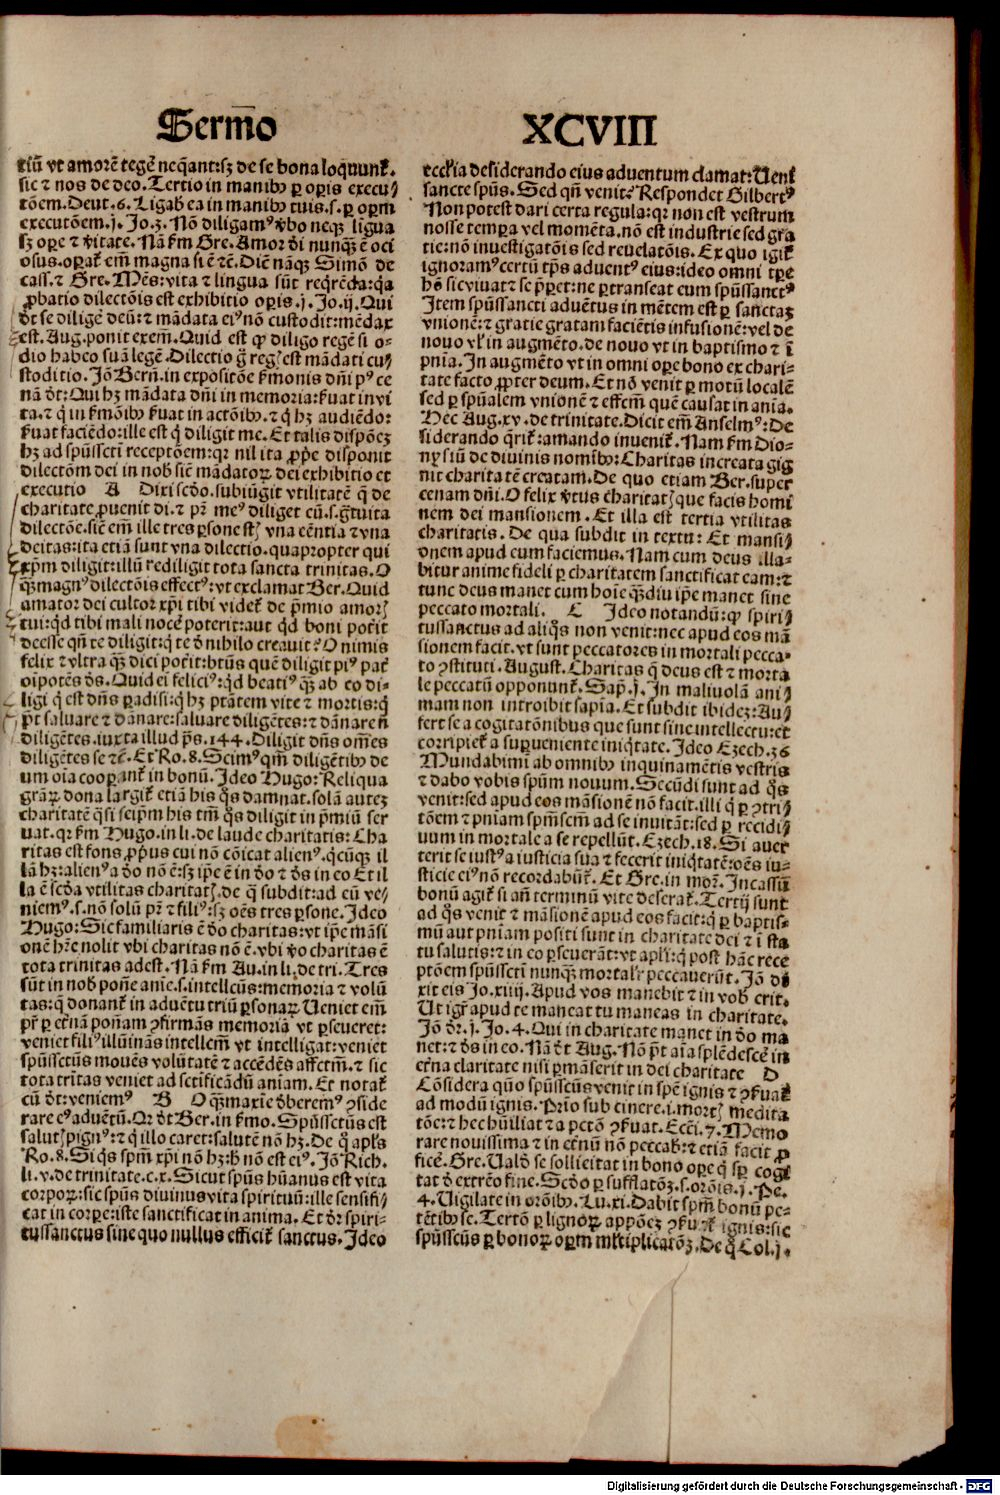 Sermo
XCVIII
tiū vt amorē tegē neq̄ant: sꝫ de se bona loq̄nunt̄.
sic ⁊ nos de deo. Tertio in manibꝰ ꝑ oꝑis execu⸗
tōem. Deut. 6. Ligab ea in manibꝰ tuis. s. ꝑ oꝑm
executōem. j. Jo. 3. Nō diligamꝰ v̓bo neqꝫ ligua
sꝫ oꝑe ⁊ v̓itate. Nā km̄ Gre. Amor dī nunqꝫ ē oci
osus. oꝑat̄ em̄ magna si ē ⁊c̄. Diē nāqꝫ Simō de
cass. ⁊ Gre. Mēs: vita ⁊ lingua sūt reqrēda: q̄a
ꝓbatio dilectōis est exhibitio oꝑis. j. Jo. ij. Qui
d̄t se diligē deū: ⁊ mādata eiꝰ nō custodit: mēdax
est. Aug. ponit exem̄. Quid est ꝙ diligo regē si o⸗
dio habeo suā legē. Dilectio g̊ regꝭ est mādati cu⸗
stoditio. Jō Bern̄. in expositōe k̄monis dn̄i pꝰ ce
nā d̄t: Qui hꝫ mādata dn̄i in memoria: k̄uat in vi
ta. ⁊ q̇ in k̄mōibꝰ k̄uat in actōibꝰ. ⁊ q̇ hꝫ audiēdo:
k̄uat faciēdo: ille est q̇ diligit me. Et talis dispōeꝫ
hꝫ ad spūsscti receptōem: qꝛ nil ita ꝓpͤ disponit
dilectōm dei in nob sic̄ mādatoꝝ dei exhibitio et
executio A Dixi scd̄o. subiūgit vtilitatē q̄ de
charitate ꝓuenit di. ⁊ pr̄ meꝰ diliget eū. s. g̊tuita
dilectōe. sic̄ em̄ ille tres ꝑsone stꝭ vna eēntia ⁊ vna
deitas: ita etiā sunt vna dilectio. quapꝛopter qui
xp̄m diligit: illū rediligit tota sancta trinitas. O
q̄ꝫ magnꝰ dilectōis effectꝰ: vt exclamat Ber. Quid
amator dei cultor xp̄i tibi videt̄ de p̄mio amorꝭ
tui: qd tibi mali nocē poterit: aut qd boni pot̄it
deesse qn̄ te diligit: q̇ te d̄ nihilo creauit? O nimis
felix ⁊ vltra q̄ꝫ dici pot̄it: btūs quē diligit piꝰ pat̄
oīpotēs d̄s. Quid ei feliciꝰ: qd beatiꝰ q̄ꝫ ab eo di⸗
ligi q̇ est dn̄s ꝑadisi: q̇ hꝫ ptātem vite ⁊ mortis: q̇
p̄t saluare ⁊ dānare: saluare diligētes: ⁊ dānare n̄
diligētes. iuxta illud p̄s. 144. Diligit dn̄s om̄es
diligētes se ⁊c̄. Et Ro. 8. Scimꝰ qm̄ diligētibꝰ de
um oīa cooꝑant̄ in bonū. Jdeo Hugo: Reliqua
gr̄aꝝ dona largit̄ etiā his q̊s damnat. solā autez
charitatē q̄si seip̄m his tm̄ q̊s diligit in p̄miū ser
uat. qꝛ km̄ Hugo. in li. de laude charitatis: Cha
ritas est fons ꝓpͥus cui nō cōicat alienꝰ. q̇cūqꝫ il
lā hꝫ: alienꝰ a d̄o nō ē: sꝫ ip̄e ē in d̄o ⁊ d̄s in eo Et il
la ē scd̄a vtilitas charitatꝭ. de q̄ subdit: ad eū ve⸗
niemꝰ. s. nō solū pr̄ ⁊ filiꝰ: sꝫ oēs tres ꝑsone. Jdeo
Hugo: Sic familiaris ē d̄o charitas: vt ip̄e māsi
onē hr̄e nolit vbi charitas nō ē. vbi v̓o charitas ē
tota trinitas adest. Nā km̄ Au. in li. de tri. Tres
sūt in nob poñe anie. s. intellcūs: memoria ⁊ volū
tas: q̄ donant̄ in aduētu triū ꝑsonaꝝ. Veniet em̄
pr̄ ꝑ et̄nā pon̄am ꝯfirmās memoriā vt ꝑseueret:
veniet filiꝰ illūinās intellcm̄ vt intelligat: veniet
spūssctūs mouēs volūtatē ⁊ accēdēs affectm̄. ⁊ sic
tota trītas veniet ad sctificādū aniam. Et notat̄
cū d̄t: veniemꝰ B O q̄ꝫ maxīe d̄beremꝰ ꝯside
rare eꝰ aduētū. Qꝛ d̄t Ber. in k̄mo. Spūssctūs est
salutꝭ pignꝰ: ⁊ q̇ illo caret: salutē nō hꝫ. De q̄ apl̄s
Ro. 8. Si q̇s spm̄ xp̄i nō hꝫ: h̓ nō est eiꝰ. Jō Rich.
li. v. de trinitate. c. x. Sicut spūs hūanus est vita
corpoꝝ: sic spūs diuinus vita spirituū: ille sensifi⸗
cat in corꝑe: iste sanctificat in anima. Et d̄r spiri⸗
tussanctus sine quo nullus efficit̄ sanctus. Jdeo
eccl̄ia desiderando eius aduentum clamat: Veni
sancte spūs. Sed qn̄ venit? Respondet Gilbertꝰ
Non potest dari certa regula: qꝛ non est vestrum
nosse temꝑa vel momēta. nō est industrie sed gra
tie: nō inuestigatōis sed reuelatōis. Ex quo igit̄
ignoramꝰ certū tp̄s aduentꝰ eius: ideo omni tꝑe
hō sic viuat ⁊ se p̄ꝑet: ne ꝑtranseat eum spūssanctꝰ
Jtem spūssancti aduētus in mētem est ꝑ sanctaꝫ
vnionē: ⁊ gratie gratam faciētis infusionē: vel de
nouo vl̓ in augmēto. de nouo vt in baptismo ⁊ ī
pn̄ia. In augmēto vt in omni oꝑe bono ex chari⸗
tate facto ꝓpter deum. Et nō venit ꝑ motū localē
sed ꝑ spūalem vnionē ⁊ effcm̄ quē causat in anīa.
Hec Aug. xv. de trinitate. Dicit em̄ Anselmꝰ: De
siderando q̄rit̄: amando inuenit̄. Nam km̄ Dio⸗
nysiū de diuinis nomībꝰ: Charitas increata gig
nit charitatē creatam. De quo etiam Ber. super
cenam dn̄i. O felix v̓tus charitatꝭ que facis homi
nem dei mansionem. Et illa est tertia vtilitas
charitatis. De qua subdit in textu: Et mansi⸗
onem apud eum faciemus. Nam cum deus illa⸗
bitur anime fideli ꝑ charitatem sanctificat eam: ⁊
tunc deus manet cum hoīe q̄ꝫdiu ip̄e manet sine
peccato mortali. C Jdeo notandū: ꝙ spiri⸗
tussanctus ad aliq̊s non venit: nec apud eos mā
sionem facit. vt sunt peccatores in mortali pecca⸗
to ꝯstituti. August. Charitas q̄ deus est ⁊ morta
le peccatū opponunt̄. Sap̄. j. In maliuolā ani⸗
mam non introibit sapīa. Et subdit ibidez: Au⸗
fert se a cogitatōnibus que sunt sine intellectu: et
corripiet̄ a suꝑueniente iniq̇tate. Jdeo Ezech. 36
Mundabimī ab omnibꝰ inquinamētis vestris
⁊ dabo vobis spūm nouum. Secūdi sunt ad q̊s
venit: sed apud eos māsionē nō facit. illi q̇ ꝑ ꝯtri⸗
tōem ⁊ pn̄iam spm̄scm̄ ad se inuitāt: sed ꝑ recidi⸗
uum in mortale a se repellūt. Ezech. 18. Si auer
terit se iustꝰ a iusticia sua ⁊ fecerit iniq̇tatē: oēs iu⸗
sticie eiꝰ nō recordabūt̄. Et Gre. in mor̄. Incassū
bonū agit̄ si an̄ terminū vite deserat̄. Tertij sunt
ad q̊s venit ⁊ māsionē apud eos facit: q̇ ꝑ baptis⸗
mū aut pn̄iam positi sunt in charitate dei ⁊ ī sta
tu salutis: ⁊ in eo ꝑseuerāt: vt apl̓i: q̇ post hāc rece
ptōem spūsscti nunqꝫ mortalr̄ peccauerūt. Jō di
xit eis Jo. xiiij. Apud vos manebit ⁊ in vob erit.
Vt igr̄ apud te maneat tu maneas in charitate.
Jō d̄r. j. Jo. 4. Qui in charitate manet in d̄o ma
net: ⁊ d̄s in eo. Nā d̄t Aug. Nō p̄t aīa splēdescē in
et̄na claritate nisi ꝑmāserit in dei charitate D
Cōsidera quō spūsscūs venit in spē ignis ⁊ ꝯkuat̄
ad modū ignis. Prīo sub cinere. i. mortꝭ medita
tōe: ⁊ hec hūiliat ⁊ a pctō ꝯkuat. Ecci. 7. Memo
rare nouissima ⁊ in et̄nū nō peccab: ⁊ etiā facit ꝓ
ficē. Gre. Vald̓ se sollicitat in bono oꝑe q̇ sꝑ cogi
tat d̓ extrēo fine. Scd̄o ꝑ sufflatōꝫ. s. orōis. j. Pe.
4. Vigilate in orōibꝰ. Lu. xi. Dabit spm̄ bonū pe⸗
tētibꝰ se. Tertō ꝑ lignoꝝ appōeꝫ ꝯkuat̄ ignis: sic
spūsscūs ꝑ bonoꝝ oꝑm ml̓tiplicatōꝫ. De q̊ Col. j.
Digitalisierung gefördert durch die Deutsche Forschungsgemeinschaft - DFG